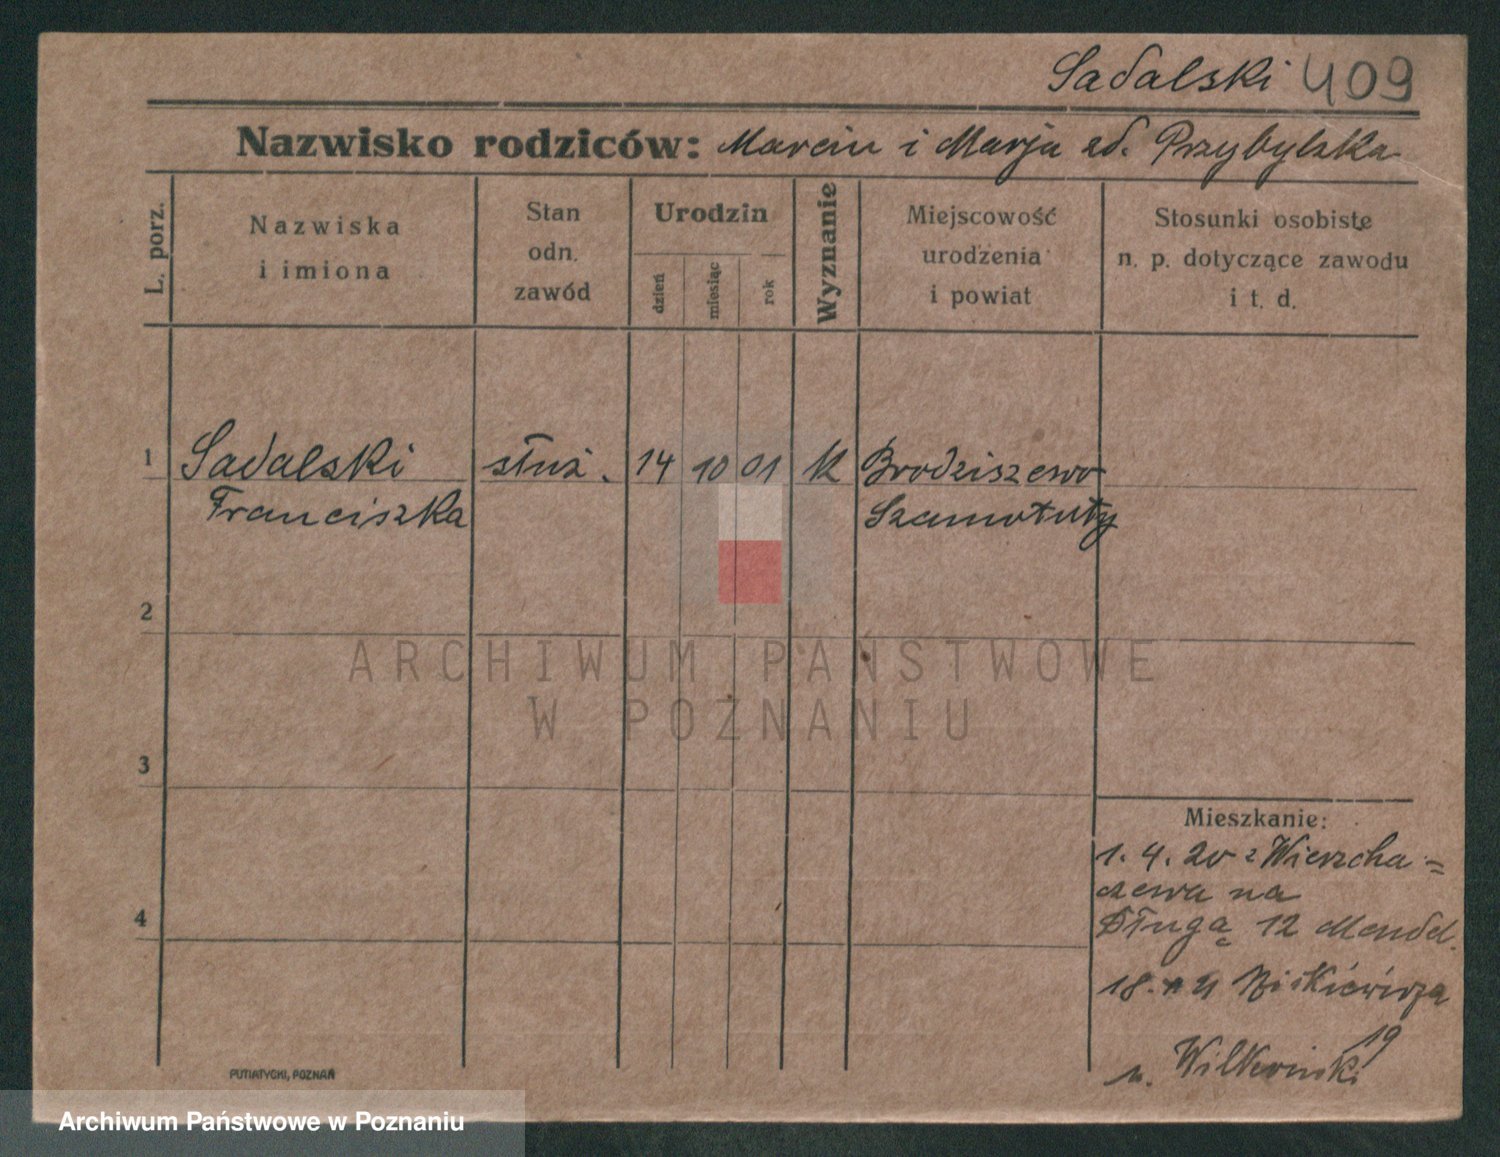 Sadalski 409
Nazwisko rodziców: Marcin i Marja zd. Przybylska
L. porz.
Nazwiska
i imiona
Stan
odn.
zawód
Urodzin
dzień
miesiąc
rok
Wyznanie
Miejscowość
urodzenia
i powiat
Stosunki osobiste
n. p. dotyczące zawodu
i t. d.
1 Sadalski służ. 14 10 01 K Brodziszewo
Franciszka Szamotuły
2
ARCHIWUM PAŃSTWOWE
W POZNANIU
3
Mieszkanie:
1. 4. 20 z Wierzcha=
czewa na
4
Długą 12 Mendel.
18.
19
n.
PUTIATYCKI, POZNAŃ
Archiwum Państwowe w Poznaniu